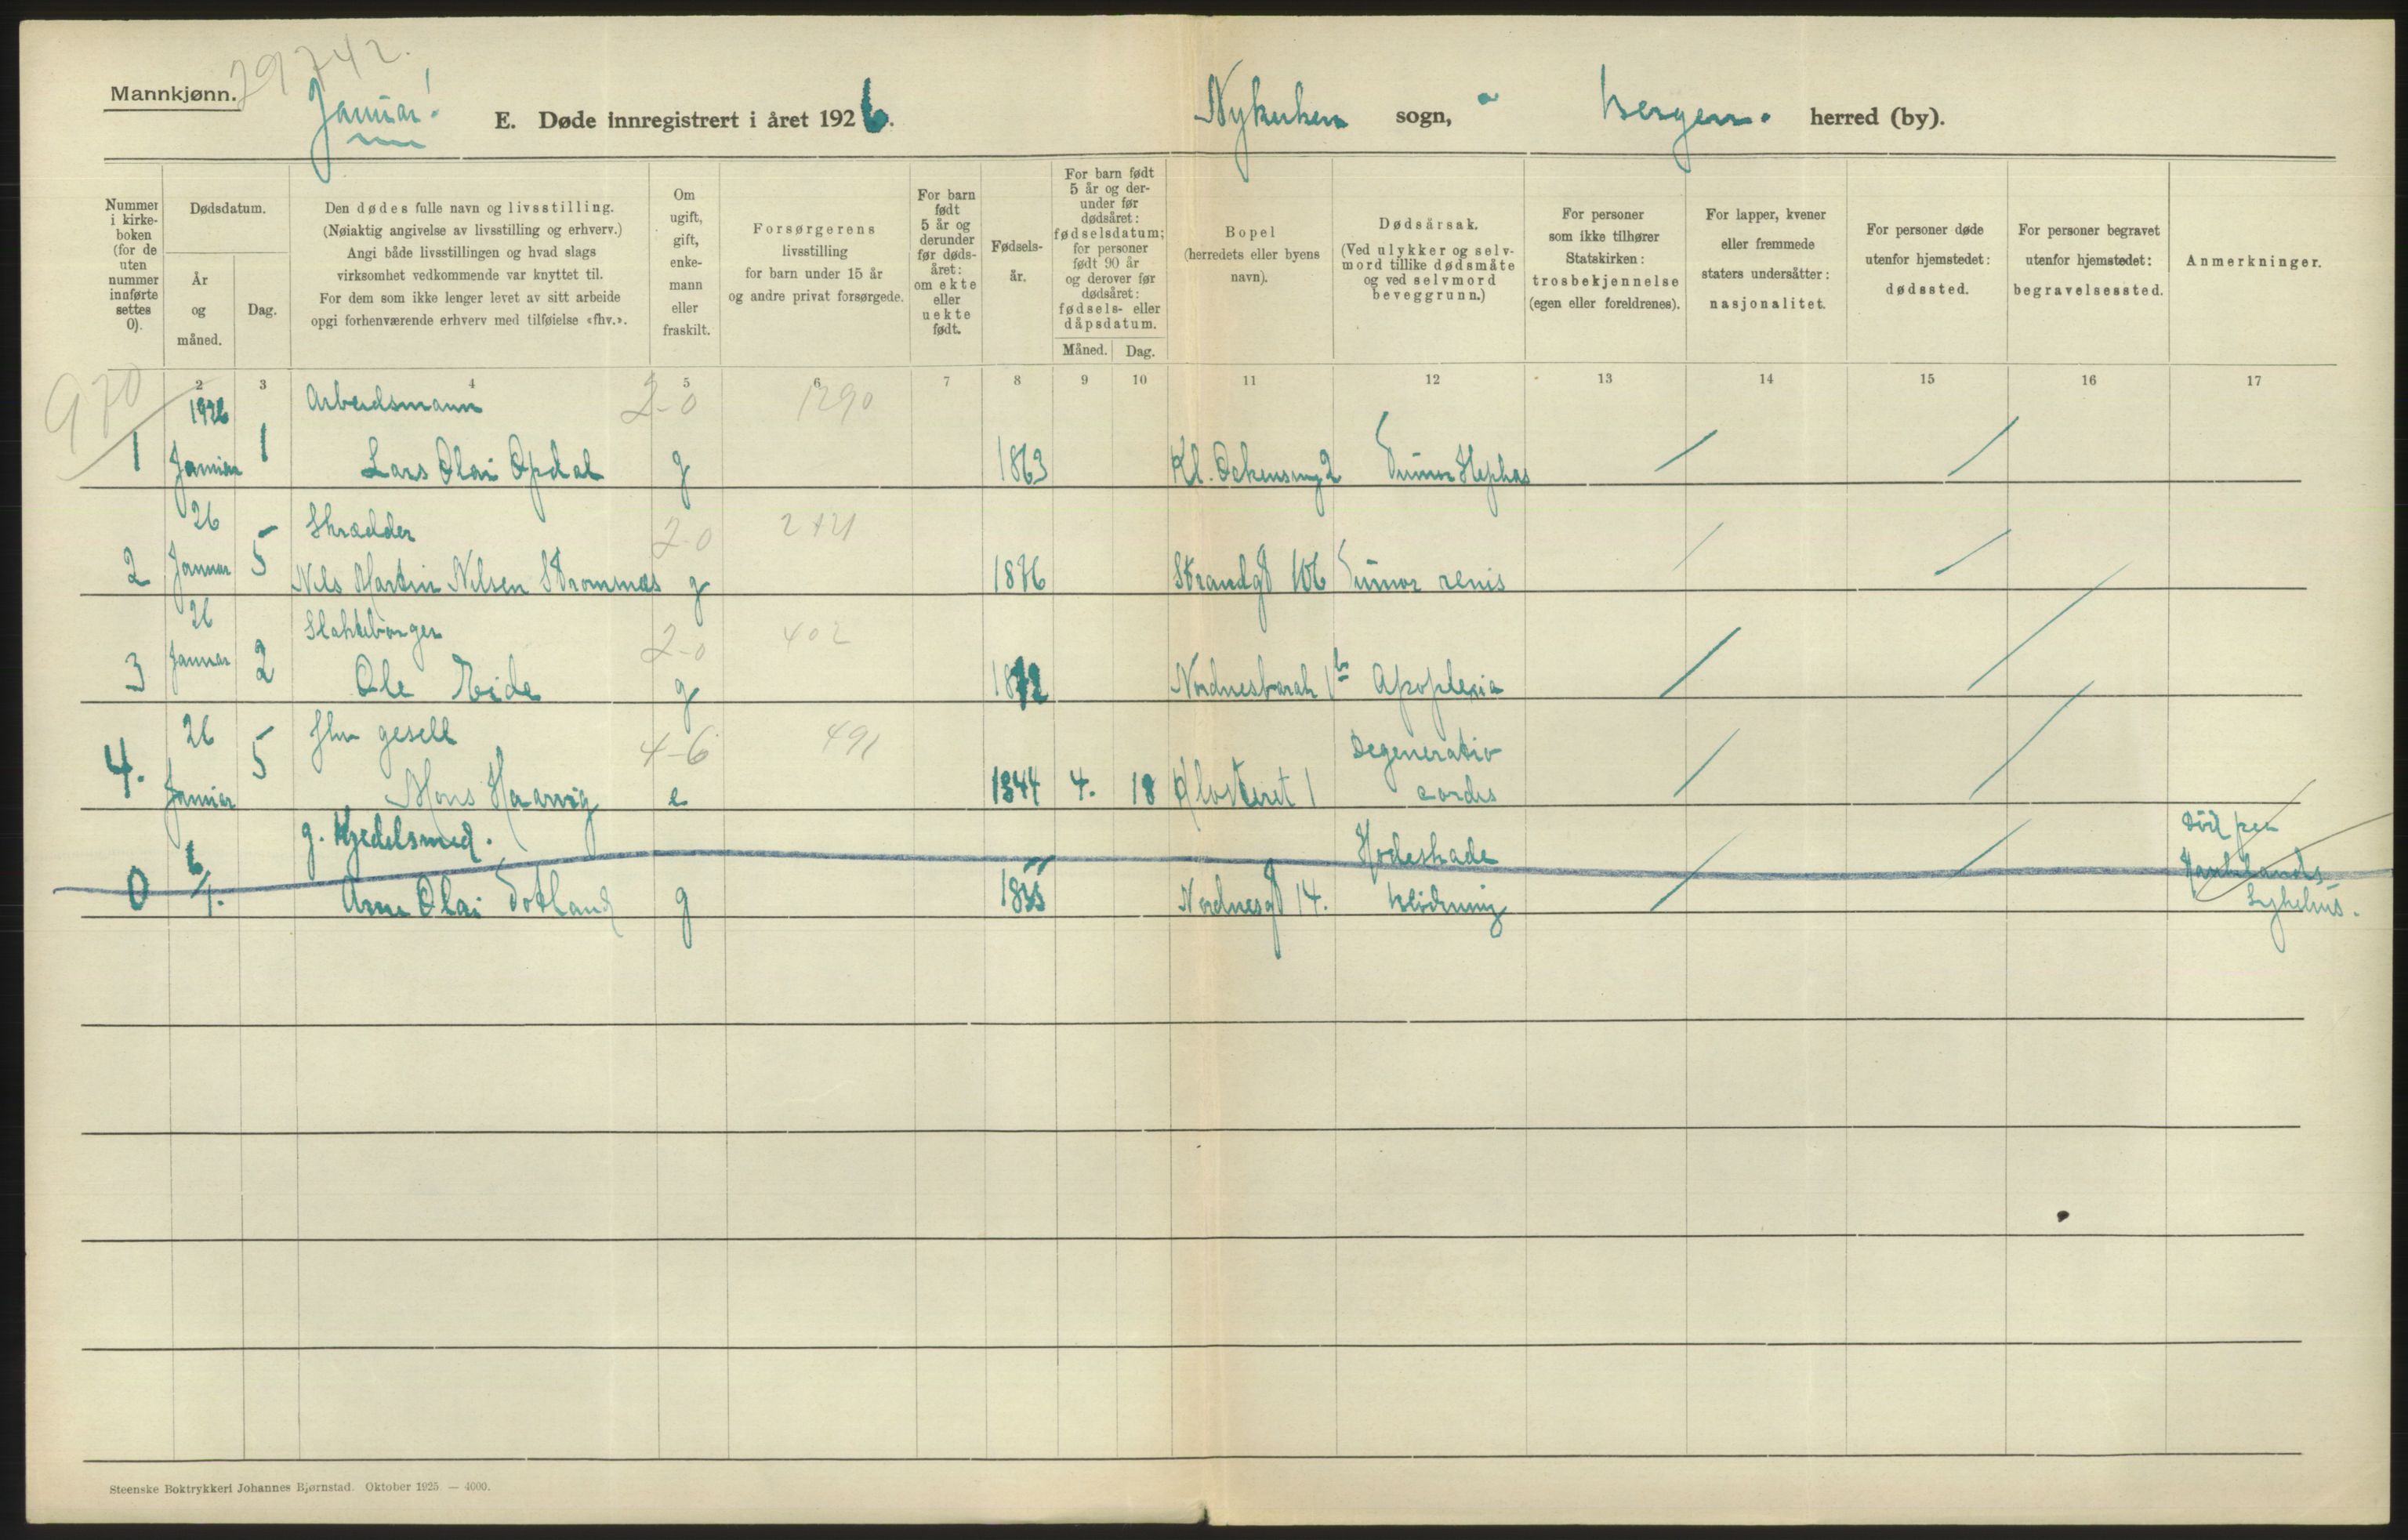 29742.
Mannkjønn.
Januar!
E. Døde innregistrert i året 1926.
Nykirken sogn, Bergen. herred (by).
Nummer i kirke-boken (for de uten nummer innførte settes 0).
Dødsdatum.
År og måned.
Dag.
Den dødes fulle navn og livsstilling.
(Nøiaktig angivelse av livsstilling og erhverv.)
Angi både livsstillingen og hvad slags
virksomhet vedkommende var knyttet til.
For dem som ikke lenger levet av sitt arbeide
opgi forhenværende erhverv med tilføielse «fhv.».
Om ugift, gift, enke-mann eller fraskilt.
Forsørgerens
livsstilling
for barn under 15 år
og andre privat forsørgede.
For barn født 5 år og derunder før døds-året: om ekte eller uekte født.
Fødsels-år.
For barn født 5 år og der-under før dødsåret: fødselsdatum; for personer født 90 år og derover før dødsåret: fødsels- eller dåpsdatum.
Måned. Dag.
Bopel
(herredets eller byens
navn).
Dødsårsak.
(Ved ulykker og selv-
mord tillike dødsmåte
og ved selvmord
beveggrunn.)
For personer
som ikke tilhører
Statskirken:
trosbekjennelse
(egen eller foreldrenes).
For lapper, kvener
eller fremmede
staters undersåtter:
nasjonalitet.
For personer døde
utenfor hjemstedet:
dødssted.
For personer begravet
utenfor hjemstedet:
begravelsessted.
Anmerkninger.
2 3 4 5 6 7 8 9 10 11 12 13 14 15 16 17
970
1926 Arbeidsmann 2-0 1290
1 Januar 1 Lars Olai Opdal g 1863 Kl. 2 Tumor
26 Skrædder 2-0
2 Januar 5 Nils Martin Nilsen Strømsnes g 1876 Strandgt 106 Tumor renis
26 Slakteborger 2-0 402
3 Januar 2 Ole Eide g 1872 1b Apoplexia
26 fhv gesell 4-6 491 Degeneratio
4. Januar 5 Mons e 1844 4. 18 Klosteret 1 cordis
g. Kjedelsmed. Hodeskade Død paa
0 6/1. Arne Olai Totland g Nordnesgt 14. blødning Haukelands
Sykehus.
Steenske Boktrykkeri Johannes Bjørnstad. Oktober 1925 — 4000.